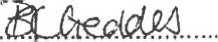 BC Geddes